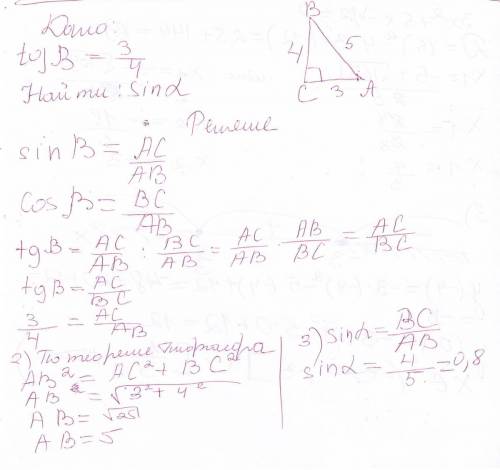 Дано:
tgβ = 3/4
Найти: sinα
B
4
5
C
3
A
Решение
sinβ = AC/AB
cosβ = BC/AB
tgβ = AC/AB : BC/AB = AC/AB · AB/BC = AC/BC
tgβ = AC/BC
3/4 = AC/AB
2) По теореме Пифагора
AB² = AC² + BC²
AB = √3² + 4²
AB = √25
AB = 5
3) sinα = BC/AB
sinα = 4/5 = 0,8